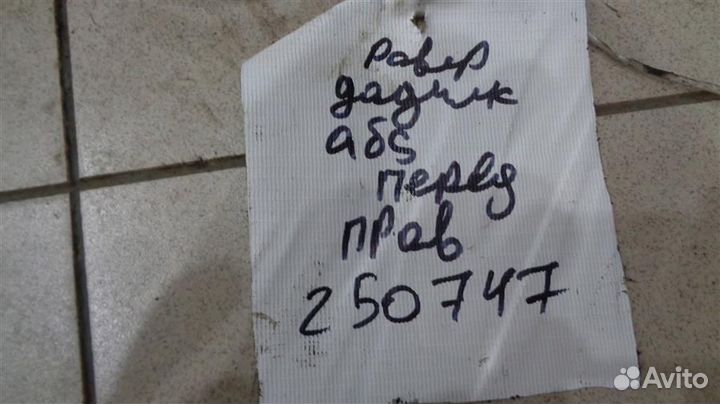 Равер
дадчик
абс
перед
прав
250747
Avito